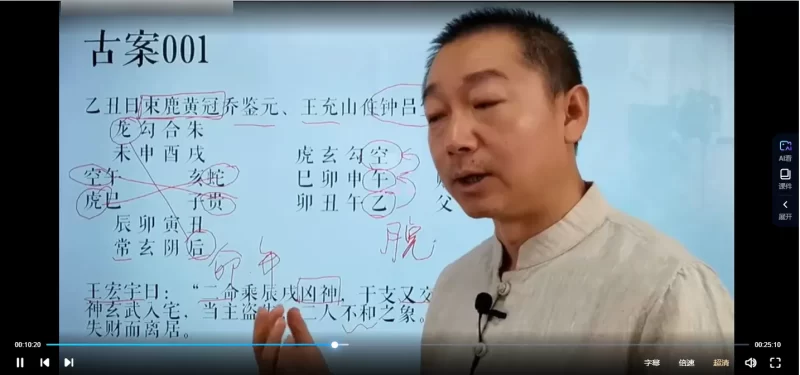 古案001
乙丑日束鹿黄冠乔鉴元、王充山住钟吕
龙勾合朱
未申酉戌
空午 亥蛇
虎巳 子贵
辰卯寅丑
常玄阴后
虎玄勾空
巳卯申午
卯丑午乙
父
脱
命 年
王宏宇曰：“二命乘辰戌凶神，干支又交
神玄武入宅，当主盗 二人不和之象。
失财而离居。
AI看
课件
展开
00:10:20
00:25:10
字幕
倍速
超清